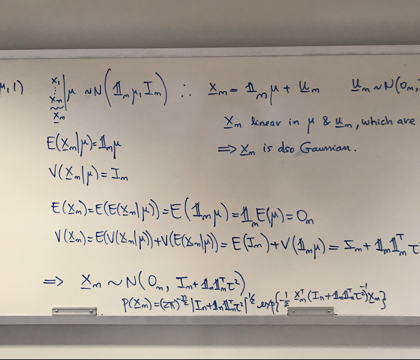 μ,1)
x₁ ⋮ xₘ | μ ~ N(𝟙ₘμ, Iₘ) ∴ xₘ = 𝟙ₘμ + uₘ uₘ ~ N(0ₘ,
xₘ
xₘ linear in μ & uₘ, which are
E(xₘ|μ) = 𝟙ₘμ
⇒ xₘ is also Gaussian.
V(xₘ|μ) = Iₘ
E(xₘ) = E(E(xₘ|μ)) = E(𝟙ₘμ) = 𝟙ₘE(μ) = 0ₘ
V(xₘ) = E(V(xₘ|μ)) + V(E(xₘ|μ)) = E(Iₘ) + V(𝟙ₘμ) = Iₘ + 𝟙ₘ𝟙ₘᵀ τ
⇒ xₘ ~ N(0ₘ, Iₘ + 𝟙ₘ𝟙ₘᵀτ²)
p(xₘ) = (2π)^{-m/2} |Iₘ + 𝟙ₘ𝟙ₘᵀτ²|^{-1/2} exp{-½ xₘᵀ(Iₘ + 𝟙ₘ𝟙ₘᵀτ²)⁻¹xₘ}